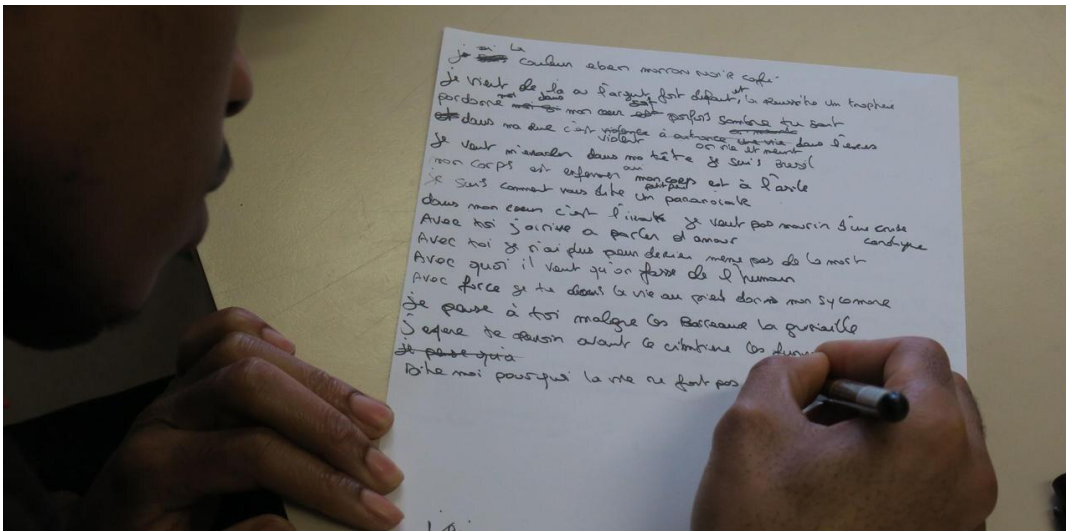 la
je couleur eben marron noir café
je vient de la ou l'argent fort defaut, et la reussite un trophee
pardonne mon cœur parfois sombre tu sait
dans ma rue c'est violent à outrance on rie et meurt dans l'exces
je veut m'evader dans ma tête je suis
mon corps est enfermer mon corps est à l'asile
je suis comment vous dire un petit peu paranoiak
dans mon cœur c'est je veut pas mourir d'un crise cardiaque
Avec toi j'arrive a parler d'amour
Avec toi je n'ai plus peur de rien meme pas de la mort
Avec quoi il veut qu'on fasse de l'humain
Avec force je te la vie au pied dans mon sycomore
je pense à toi malgre les Barreaux la grisaille
j'espere te revoir avant le cimetiere les
je pense qua
Dite moi pourquoi la vie ne font pas